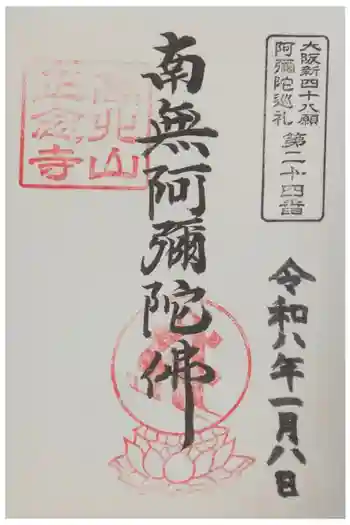 大阪新四十八願
阿彌陀巡礼 第二十四番
令和八年一月八日
南無阿彌陀佛
山
正念寺